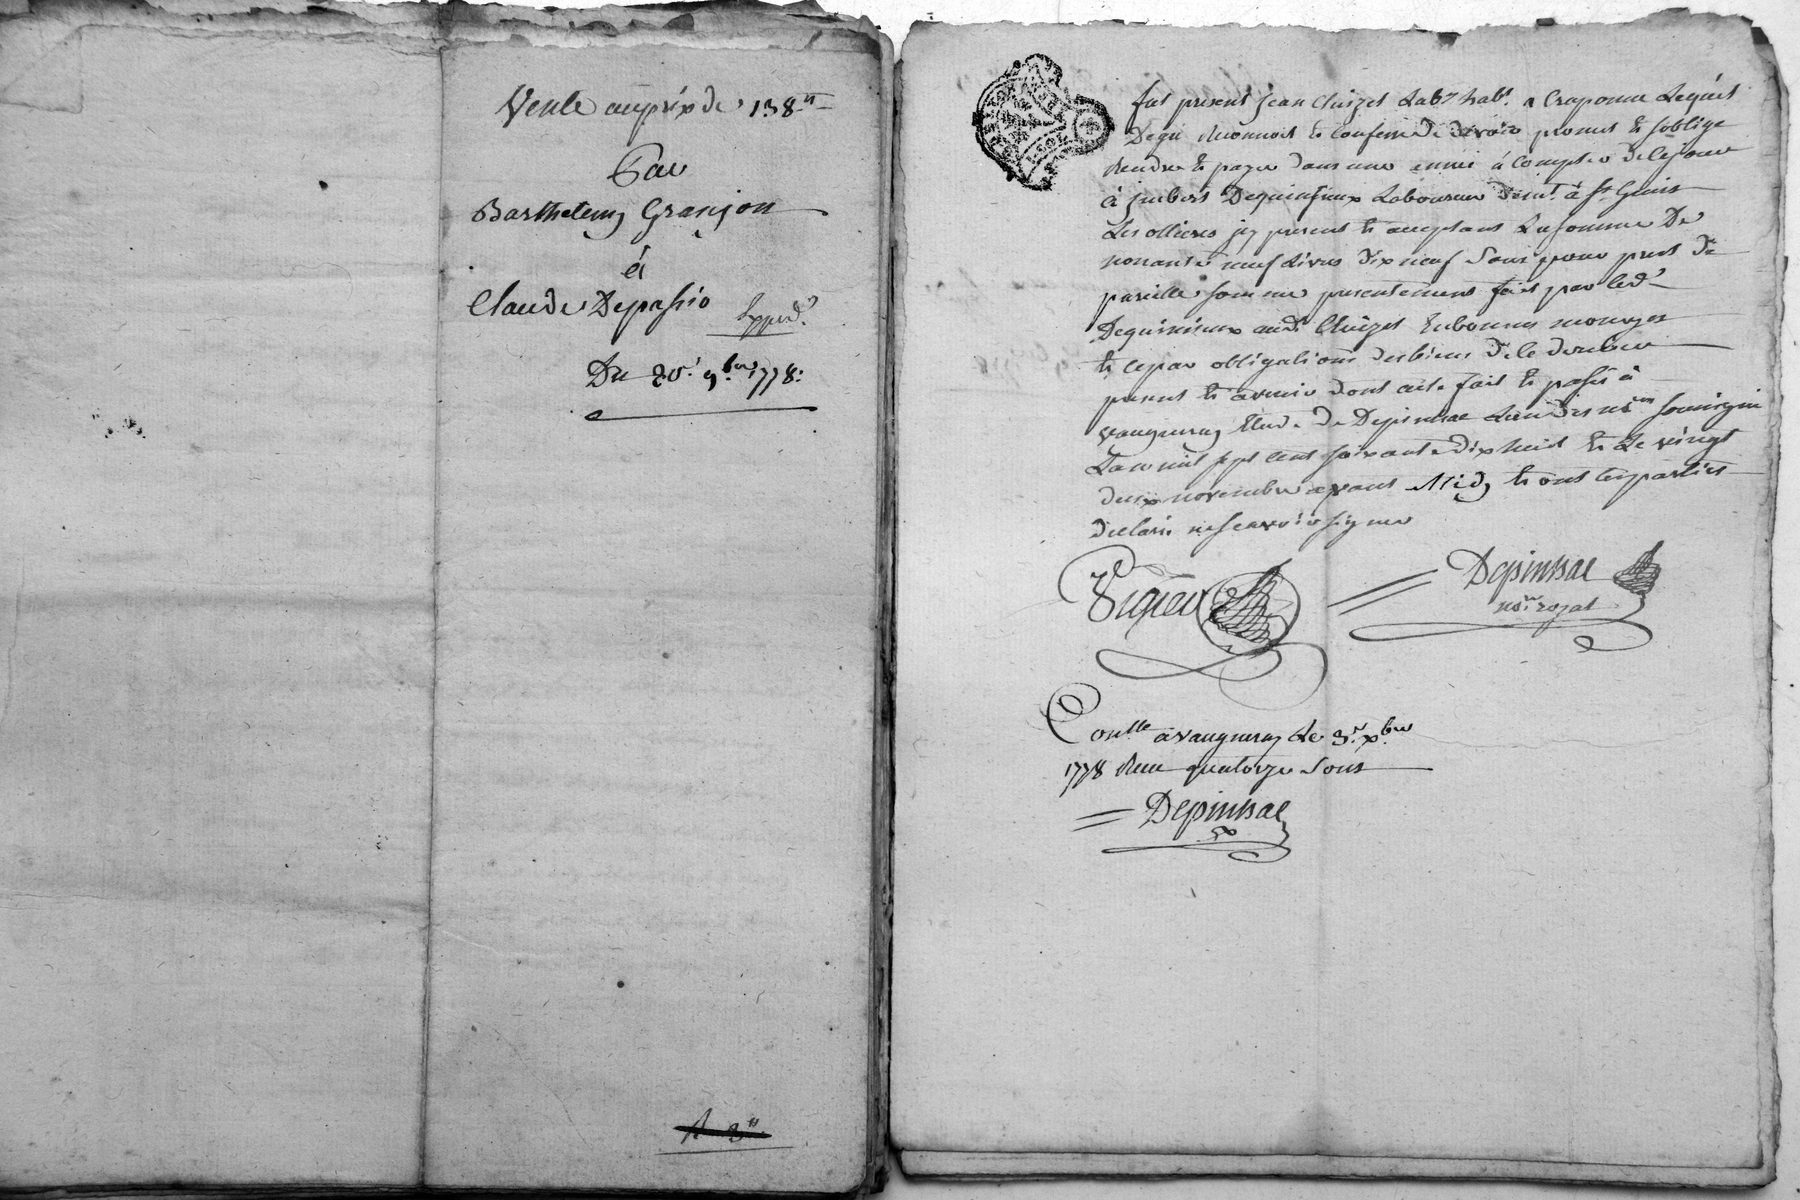 Vente au prix de 138 ₶
Par
Barthelemy Granjon
à
Claude Depassio
Expped.
Du 20.e 9.bre 1778.
fut present jean Clusel Lab.r hab.t a Craponne Lequel
De gré reconnoit et confesse de devoir promet et soblige
rendre et payer dans une année à compter de ce jour
à jmbert Dequinsieux Laboureur dem.t à S.t Genis
Les ollieres jcy present et acceptant La somme De
nonante neuf Livres dix neuf Sous pour prest de
pareille somme presentement fait par led.
Dequinsieux aud. Clusel En bonnes monoyes
et ce par obligations des biens de le debiteur
present et avenir dont acte fait et passé à
vaugneray Etude de Depinssac Lun des no.res soussigné
Lan mil sept cent soixante dix huit et Le vingt
deux novembre avant Midy et ont les parties
declaré ne scavoir signer
Viguer
Depinssac
no.re royal
Con.lle à vaugneray Le 3.e x.bre
1778 Reçu quatorze Sous
Depinssac